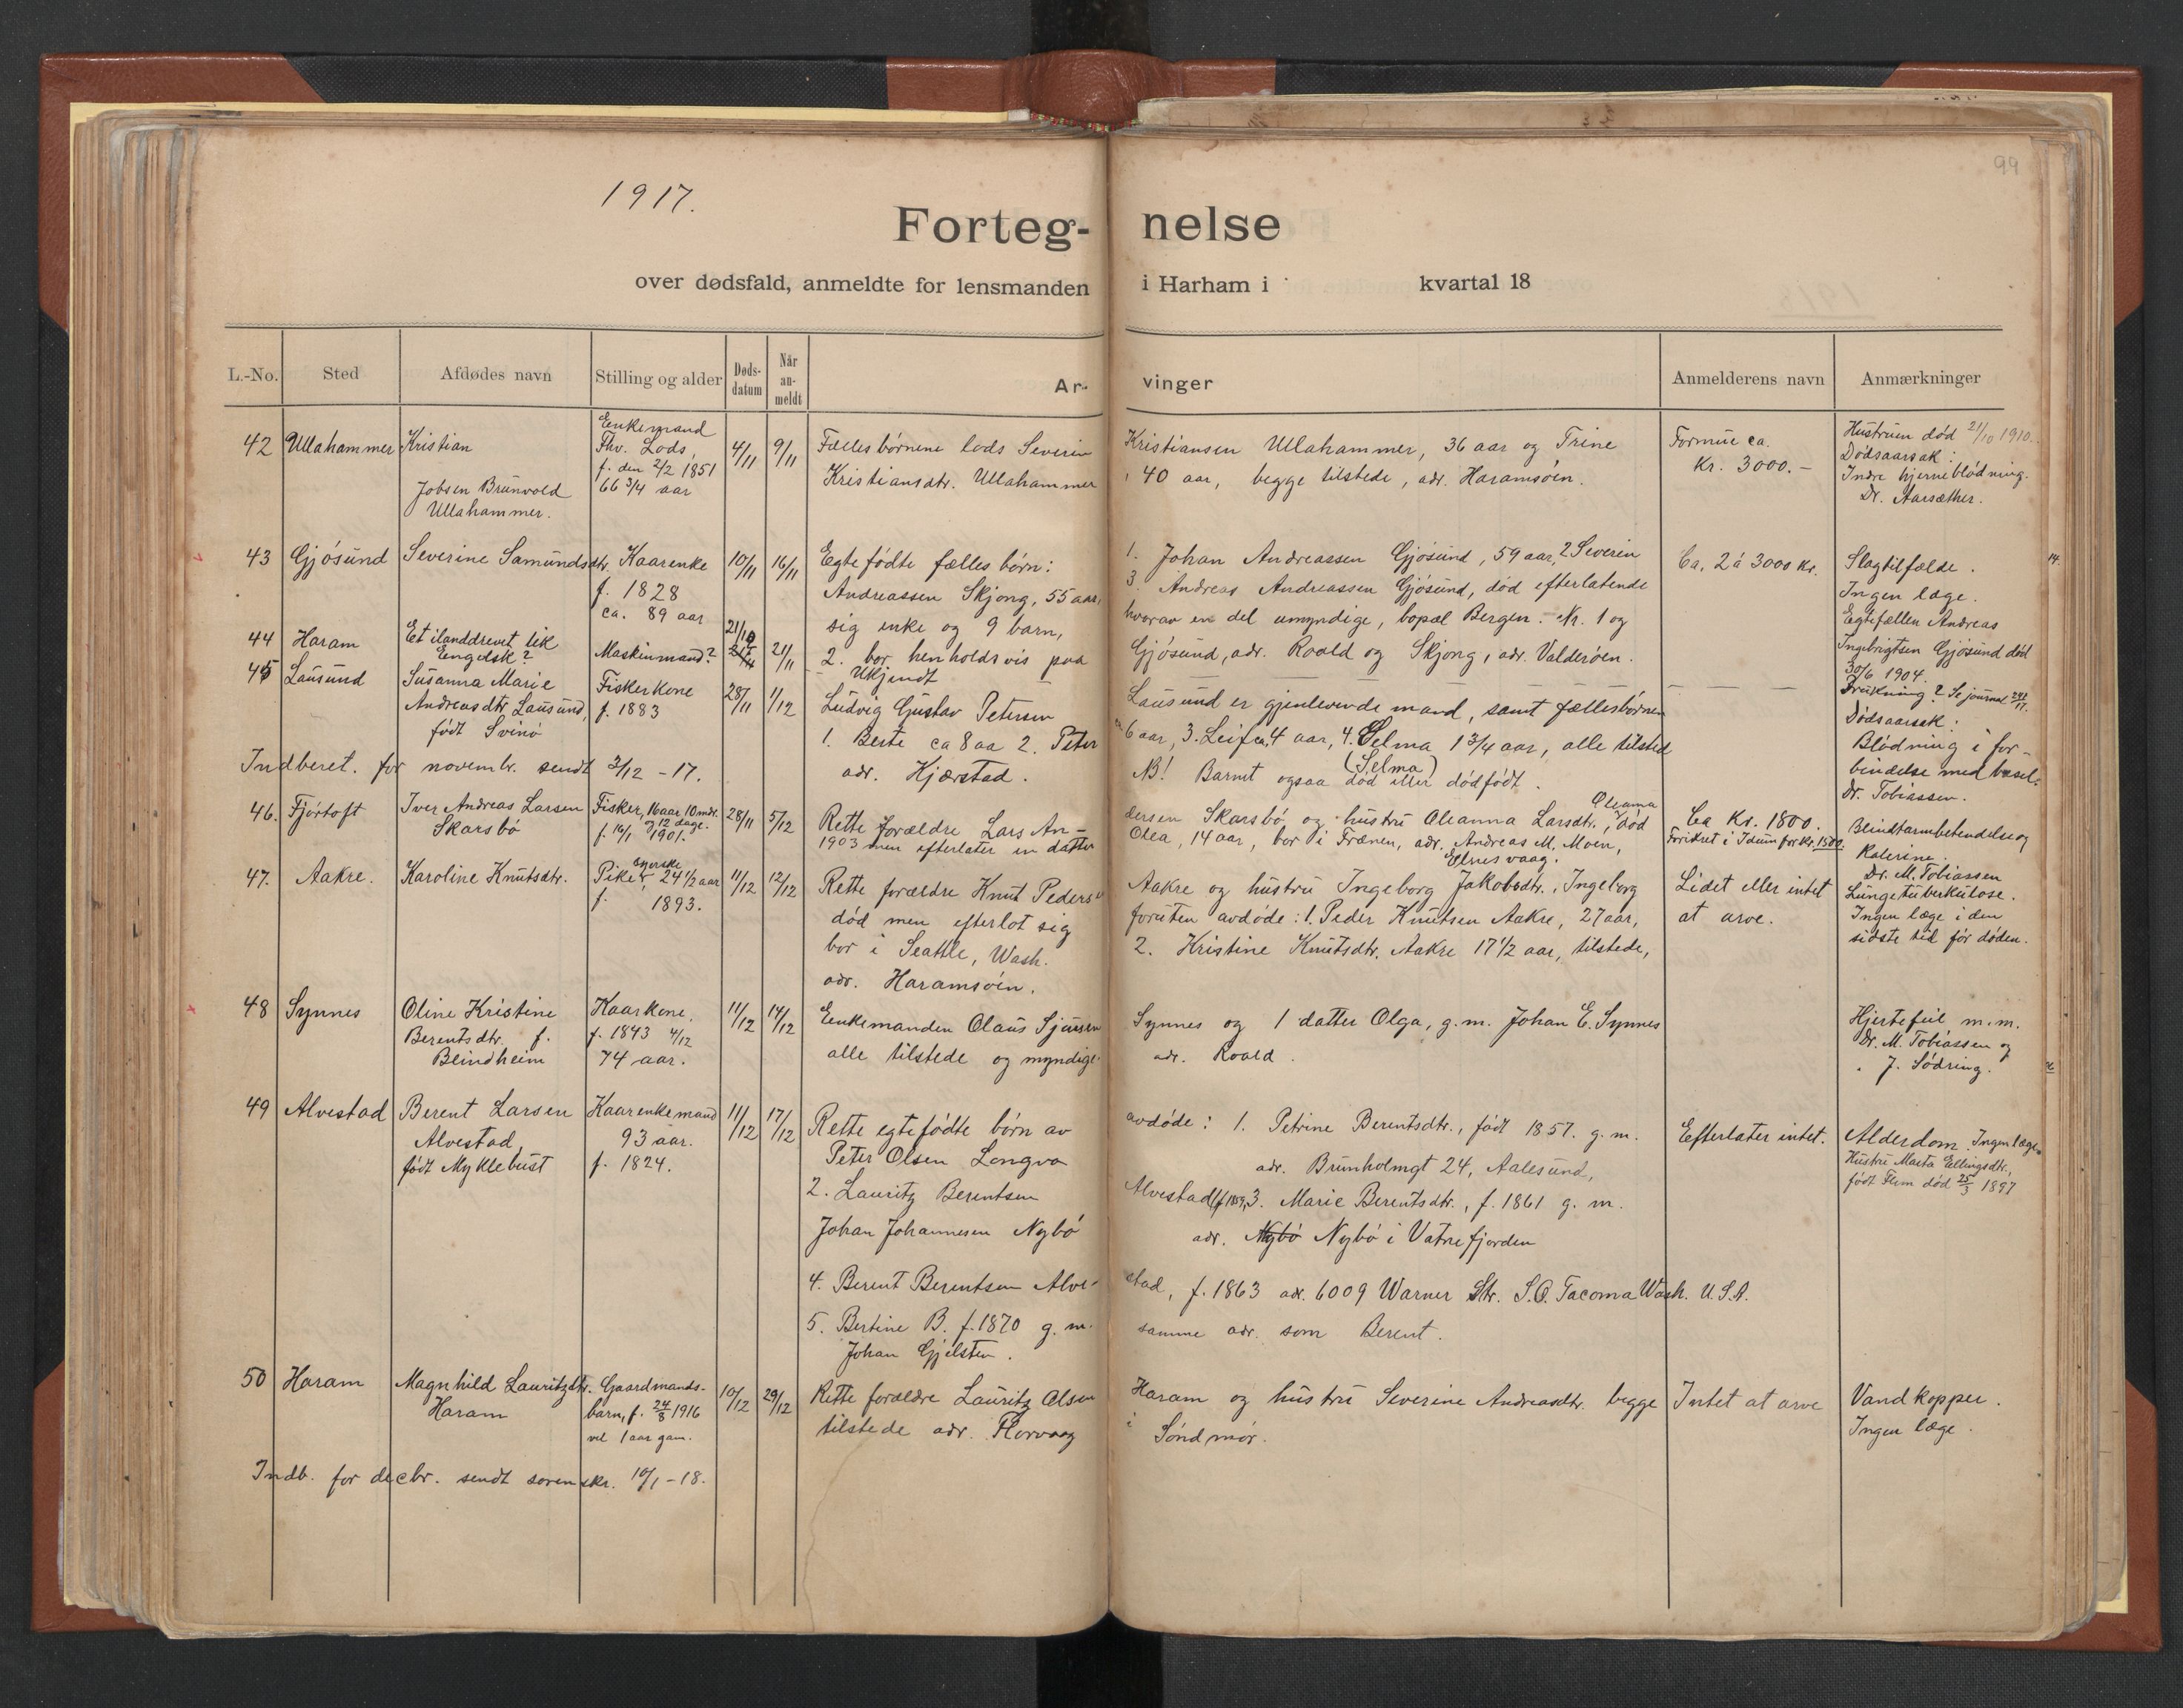 99
1917.
Forteg- nelse
over dødsfald, anmeldte for lensmanden i Harham i kvartal 18
L.-No. Sted Afdødes navn Stilling og alder Døds-datum Når an-meldt Ar- vinger Anmelderens navn Anmærkninger
42 Ullahammer Kristian
Jobsen Brunvold
Ullahammer.
Enkemand
Fhv. Lods,
f. den 2/2 1851
66 3/4 aar
4/11 9/11
Fællesbørnene lods Severin Kristiansen Ullahammer, 36 aar og Trine
Kristiansdtr. Ullahammer, 40 aar, begge tilstede, adr. Haramsøen.
Formue ca.
Kr. 3000.-
Hustruen død 21/10 1910.
Dødsaarsak:
Indre hjerneblødning.
Dr. Aarsæther.
43 Gjøsund Severine Samundsdtr. Kaarenke
f. 1828
ca. 89 aar
10/11 16/11
Egtefødte fælles børn: 1. Johan Andreassen Gjøsund, 59 aar, 2 Severin
Andreassen Skjong, 55 aar, 3 Andreas Andreassen Gjøsund, død efterlatende
sig enke og 9 barn, hvorav en del umyndige, bopæl Bergen. Nr. 1 og
2. bor henholdsvis paa Gjøsund, adr. Roald og Skjong, adr. Valderøen.
Ca. 2 á 3000 kr.
Slagtilfælde.
Ingen læge.
Egtefællen Andreas
Ingebrigtsen Gjøsund død
30/6 1904.
14.
44 Haram Et ilanddrevet lik
Engelsk?
Maskinmand?
21/10
21/11
Ukjendt
— — —
Drukning? Se journal
45 Lausund Susanna Marie
Andreasdtr. Lausund,
født Svinø
Fiskerkone
f. 1883
28/11 1/12
Ludvig Gustav Petersen Lausund er gjenlevende mand, samt fællesbørnene
1. Berte ca 8 aa 2. Peter 6 aar, 3. Leif ca. 4 aar, 4. Selma 1 3/4 aar, alle tilsted
(Selma)
adr. Hjærstad. NB! Barnet ogsaa død eller dødfødt.
Dødsaarsak:
Blødning i for-
bindelse med basel.
Dr. Tobiassen.
Indberet. for novembr. sendt 3/12 -17.
46. Fjørtoft Iver Andreas Larsen
Skarsbø
Fisker, 16 aar 10 mdr.
og 12 dage.
f. 16/1 1901.
28/11 5/12
Oleama
Rette forældre Lars An- dersen Skarsbø og hustru Oleanna Larsdtr., død
1903 men efterlater en datter Olea, 14 aar, bor i Frænen, adr. Andreas M. Moen,
Elnesvaag.
Ca Kr. 1800.
Forikret i Idun for kr. 1500.
Blindtarmbetendelse og
Dr. M. Tobiassen
47. Aakre. Karoline Knutsdtr.
Pike, syerske 24 1/2 aar
f. 1893.
11/12 12/12
Rette forældre Knut Pedersen Aakre og hustru Ingeborg Jakobsdtr. Ingeborg
død men efterlot sig foruten avdøde: 1. Peder Knutsen Aakre, 27 aar,
bor i Seattle, Wash. 2. Kristine Knutsdtr. Aakre 17 1/2 aar, tilstede,
adr. Haramsøen.
Lidet eller intet
at arve.
Lungetuberkulose.
Ingen læge i den
sidste tid før døden.
48 Synnes Oline Kristine
Berentsdtr. f.
Blindheim
Kaarkone.
f. 1843 4/12
74 aar.
11/12 14/12
Enkemanden Olaus Sjursen Synnes og 1 datter Olga, g.m. Johan E. Synnes
alle tilstede og myndige. adr. Roald.
Hjertefeil m.m.
Dr. M. Tobiassen og
" J. Sødring.
49 Alvestad Berent Larsen
Alvestad,
født Myklebust
Kaarenkemand
93 aar.
f. 1824.
11/12 17/12
Rette egtefødte børn av avdøde: 1. Petrine Berentsdtr., født 1857. g. m.
Peter Olsen Longva adr. Brunholmgt 24, Aalesund,
2. Lauritz Berentsen Alvestad, f 1859, 3. Marie Berentsdtr., f. 1861 g. m.
Johan Johannesen Nybø adr. Nybø Nybø i Vatnefjorden
4. Berent Berentsen Alve- stad, f. 1863 adr. 6009 Warner Str. S.O. Tacoma Wash. U.S.A.
5. Bertine B. f. 1870 g. m. samme adr. som Berent.
Johan Gjelsten.
Efterlater intet.
Alderdom. Ingen læge.
Hustru Marta Ellingsdtr.,
født Flem død 25/3 1897
50 Haram Magnhild Lauritzdtr.
Haram
Gaardmands-
barn, f. 24/8 1916
vel 1 aar gam.
10/12 29/12
Rette forældre Lauritz Olsen Haram og hustru Severine Andreasdtr. begge
tilstede adr. Florvaag i Søndmør.
Intet at arve
Vandkopper.
Ingen læge.
Indb. for decbr. sendt sorenskr. 10/1 -18.